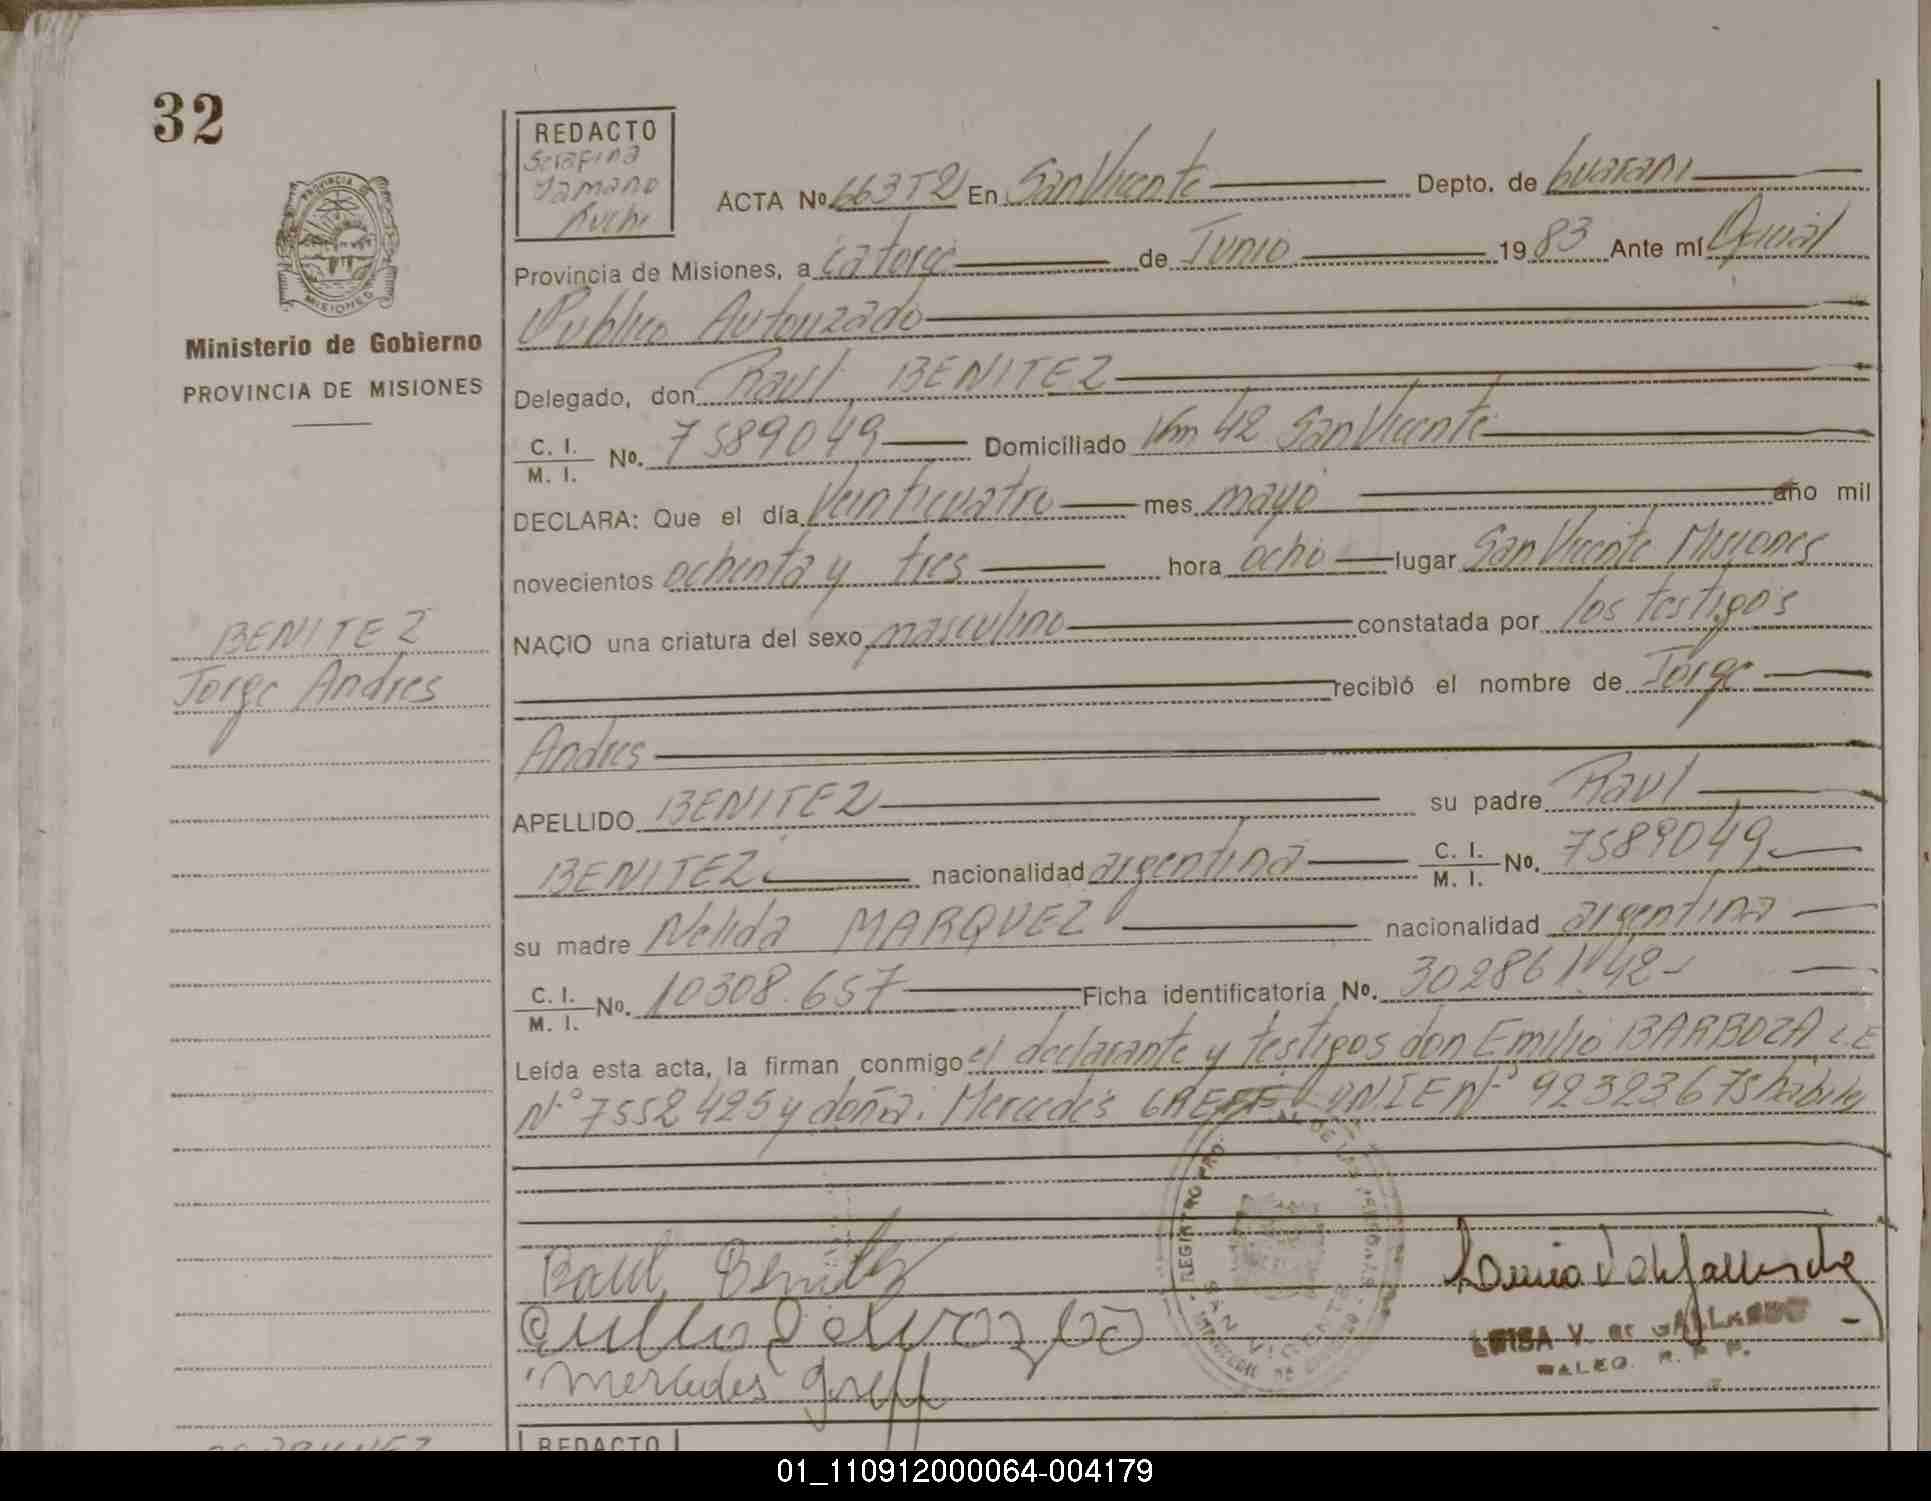 32
REDACTO
Serafina
Yamano
ACTA Nº 663T2 En San Vicente Depto. de Guarani
Provincia de Misiones, a catorce de Junio 1983 Ante mí Oficial
Publico Autorizado
Ministerio de Gobierno
PROVINCIA DE MISIONES
Delegado, don Raul BENITEZ
C. I. M. I. No. 7589049 Domiciliado Km 42 San Vicente
DECLARA: Que el día Veinticuatro mes mayo año mil
novecientos ochenta y tres hora ocho lugar San Vicente Misiones
NACIO una criatura del sexo masculino constatada por los testigos
BENITEZ
Jorge Andres
recibió el nombre de Jorge
Andres
APELLIDO BENITEZ su padre Raul
BENITEZ nacionalidad argentina C. I. M. I. No. 7589049
su madre Nelida MARQUEZ nacionalidad argentina
C. I. M. I. No. 10308.657 Ficha identificatoria No.
Leída esta acta, la firman conmigo el declarante y testigos don Emilio BARBOZA L E
Nº 7552425 y doña. Mercedes GREFF DNIE Nº 92323675 habiles
Raul Benitez
Mercedes Greff
LUISA V. DE GALLARDO
REDACTO
01_110912000064-004179